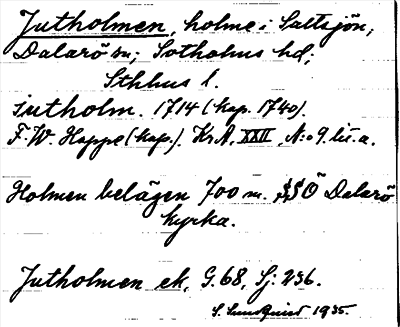 Jutholmen, holme i Saltsjön,
Dalarö sn; Sotholms hd;
Sthlms l.
Jutholm. 1714 (kop. 1740).
F. W. Happe (kop.). KrA, XXII, N:o 9 lit. a.
Holmen belägen 700 m. SSÖ Dalarö
kyrka.
Jutholmen ek, G. 68, Sj: 236.
S. Sundquist 1935.